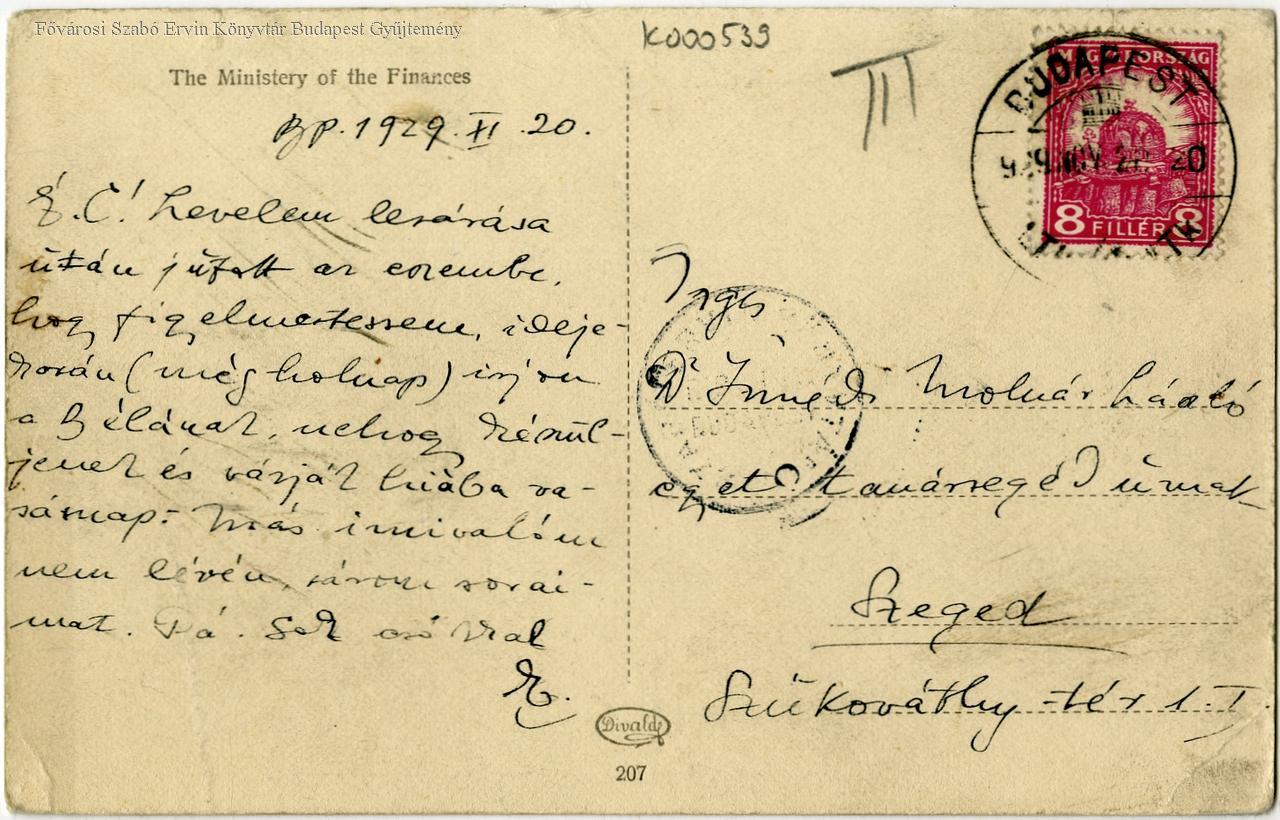 Fővárosi Szabó Ervin Könyvtár Budapest Gyűjtemény
K000539
III
The Ministery of the Finances
BP. 1929. XI. 20.
É.C! Levelem lezárása
után jutott az eszembe,
hogy figyelmeztessem, ideje-
korán (még holnap) írjon
a Bélának, nehogy készül-
jenek és várják hiába va-
sárnap. Más írnivalóm
nem lévén, zárom sorai-
mat. Pá. Sok csókkal
E.
MAGYARORSZÁG
8 FILLÉR 8
BUDAPEST
929 NOV 20
Dr Imrédi Molnár László
egyet. tanársegéd úrnak
Szeged
Szukováthy-tér 1. I.
Divald
207